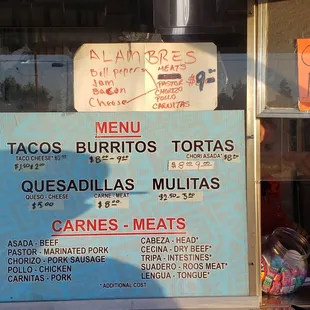 ALAMBRES
Bell peper
Jam
Bacon
Cheese
MEATS
PASTOR
CHORIZO
POLLO
CARNITAS
$9.00
MENU
TACOS BURRITOS TORTAS
$8.00-9.00
CHORI ASADA $8.00
$8.00 9.00
QUESADILLAS MULITAS
QUESO - CHEESE CARNE - MEAT $2.50-3.00
$5.00 $8.00
CARNES - MEATS
ASADA - BEEF
PASTOR - MARINATED PORK
CHORIZO - PORK SAUSAGE
POLLO - CHICKEN
CARNITAS - PORK
CABEZA - HEAD*
CECINA - DRY BEEF*
TRIPA - INTESTINES*
SUADERO - ROOS MEAT*
LENGUA - TONGUE*
*ADDITIONAL COST